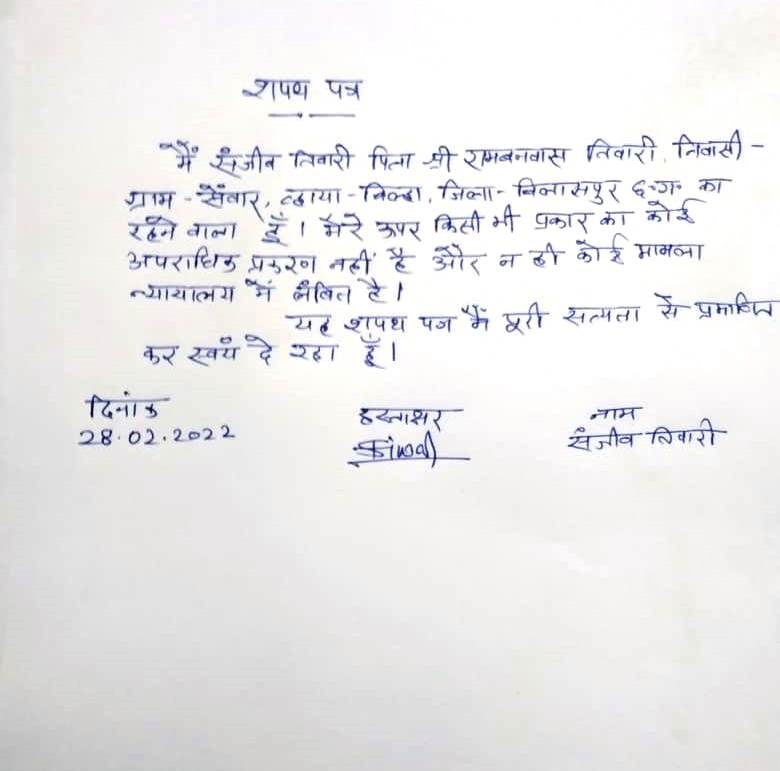 शपथ पत्र
मैं संजीव तिवारी पिता श्री रामबनवास तिवारी, निवासी -
ग्राम - सेंवार, व्हाया - बिल्हा, जिला - बिलासपुर छ.ग. का
रहने वाला हूँ । मेरे ऊपर किसी भी प्रकार का कोई
अपराधिक प्रकरण नहीं है और न ही कोई मामला
न्यायालय में लंबित है ।
यह शपथ पत्र मैं पूरी सत्यता से प्रमाणित
कर स्वयं दे रहा हूँ ।
दिनांक हस्ताक्षर नाम
28.02.2022 संजीव तिवारी